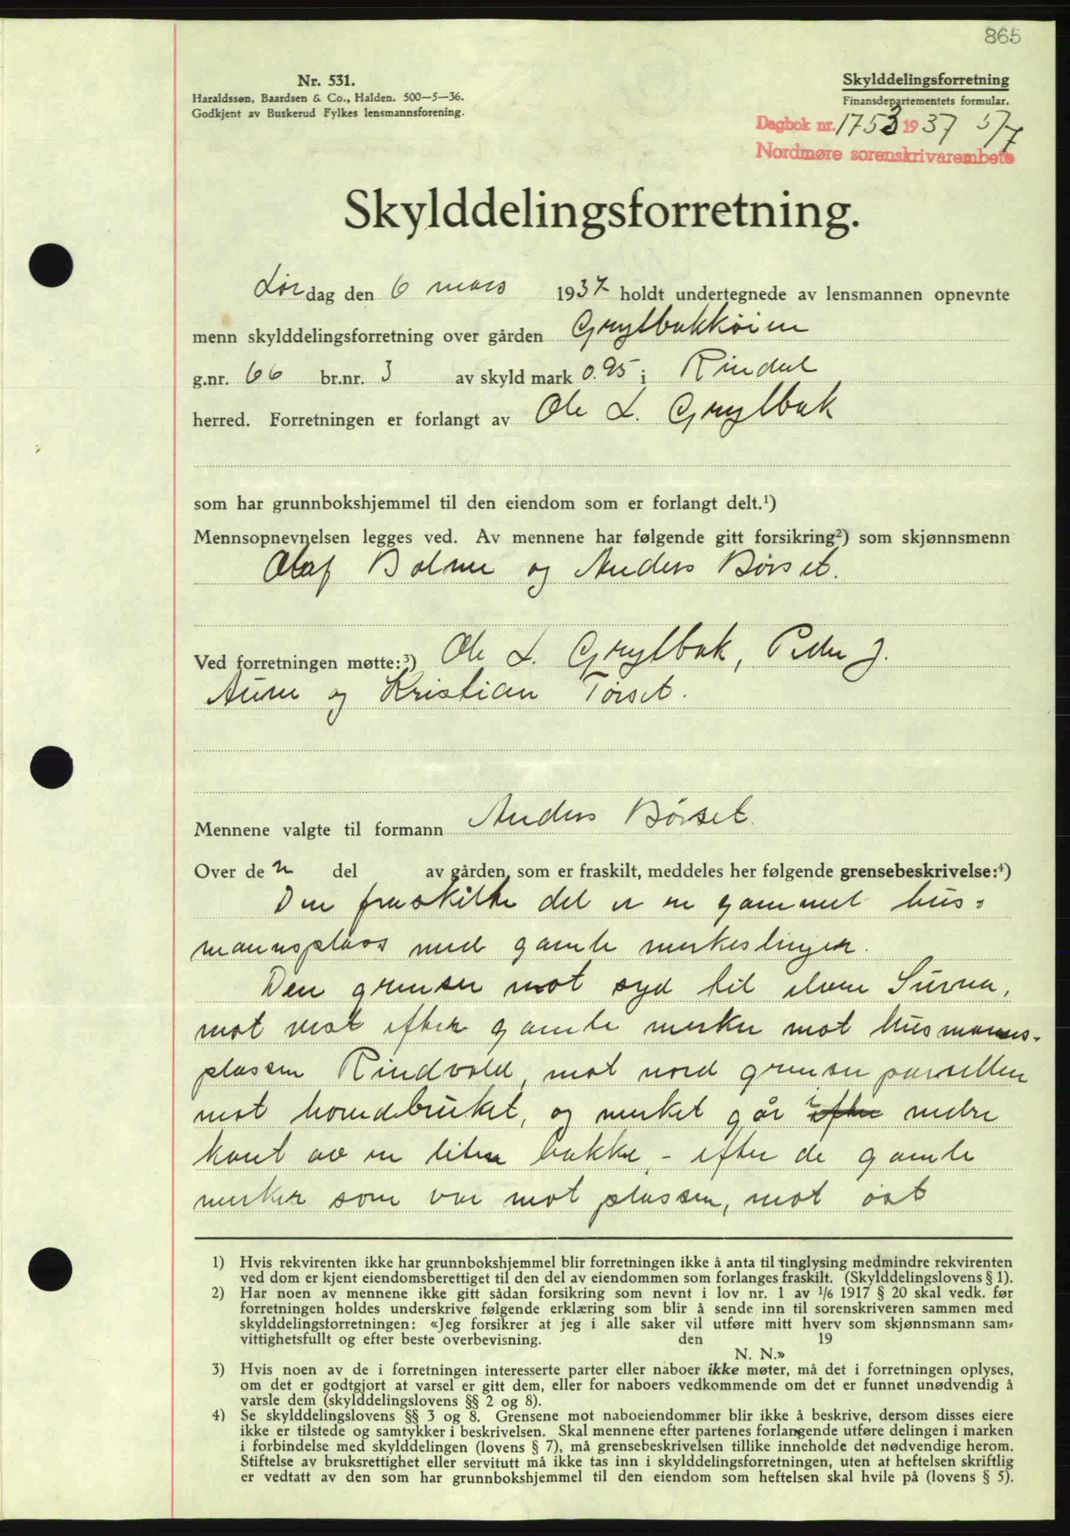 865
Nr. 531.
Haraldssøn, Baardsen & Co., Halden. 500—5—36.
Godkjent av Buskerud Fylkes lensmannsforening.
Skylddelingsforretning
Finansdepartementets formular.
Dagbok nr. 1753 1937 5/7
Nordmøre sorenskrivarembete
Skylddelingsforretning.
Lørdag den 6 mars 1937 holdt undertegnede av lensmannen opnevnte
menn skylddelingsforretning over gården Grytbakkøien
g.nr. 66 br.nr. 3 av skyld mark 0.95 i Rindal
herred. Forretningen er forlangt av Ole L. Grytbak
som har grunnbokshjemmel til den eiendom som er forlangt delt.¹)
Mennsopnevnelsen legges ved. Av mennene har følgende gitt forsikring²) som skjønnsmenn
Olaf Bolme og Anders Børset.
Ved forretningen møtte:³) Ole L. Grytbak, Peder J.
Aune og Kristian Tørset.
Mennene valgte til formann Anders Børset.
Over de n del av gården, som er fraskilt, meddeles her følgende grensebeskrivelse:⁴)
Den fraskilte del er en gammel hus=
mannsplass med gamle merkeslinjer.
Den grenser mot syd til elven Surna,
mot vest efter gamle merker mot husmanns-
plassen Rindvold, mot nord grenser parsellen
mot hovedbruket, og merket går i efter nedre
kant av en liten bakke, - efter de gamle
merker som var mot plassen, mot øst
1) Hvis rekvirenten ikke har grunnbokshjemmel blir forretningen ikke å anta til tinglysing medmindre rekvirenten
ved dom er kjent eiendomsberettiget til den del av eiendommen som forlanges fraskilt. (Skylddelingslovens § 1).
2) Har noen av mennene ikke gitt sådan forsikring som nevnt i lov nr. 1 av 1/6 1917 § 20 skal vedk. før
forretningen holdes underskrive følgende erklæring som blir å sende inn til sorenskriveren sammen med
skylddelingsforretningen: «Jeg forsikrer at jeg i alle saker vil utføre mitt hverv som skjønnsmann sam=
vittighetsfullt og efter beste overbevisning. den 19
N. N.»
3) Hvis noen av de i forretningen interesserte parter eller naboer ikke møter, må det i forretningen oplyses,
om det er godtgjort at varsel er gitt dem, eller for naboers vedkommende om det er funnet unødvendig å
varsle dem (skylddelingslovens §§ 2 og 8).
4) Se skylddelingslovens §§ 3 og 8. Grensene mot naboeiendommer blir ikke å beskrive, dersom disses eiere
ikke er tilstede og samtykker i beskrivelsen. Skal mennene efter partenes forlangende utføre delingen i marken
i forbindelse med skylddelingen (lovens § 7), må grensebeskrivelsen tillike inneholde det nødvendige herom.
Stiftelse av bruksrettighet eller servitutt må ikke tas inn i skylddelingsforretningen, uten at heftelsen skriftlig
er vedtatt av den som har grunnbokshjemmel til den eiendom som heftelsen skal hvile på (lovens § 5).